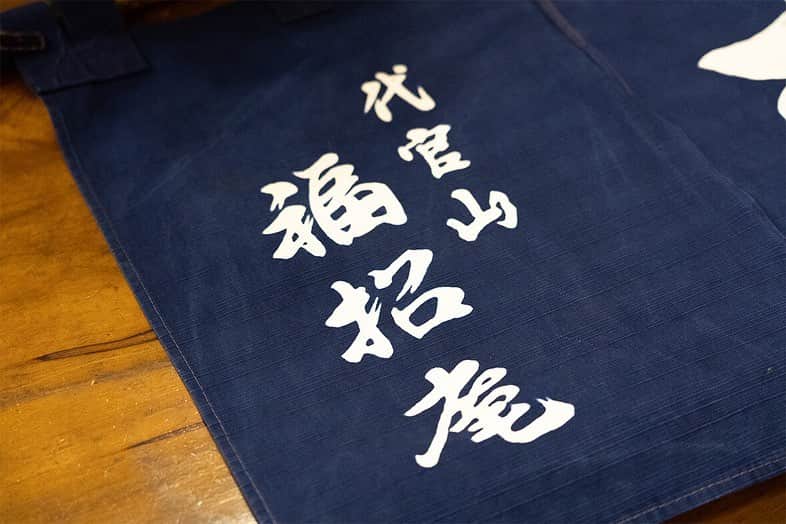 代官山
福招庵